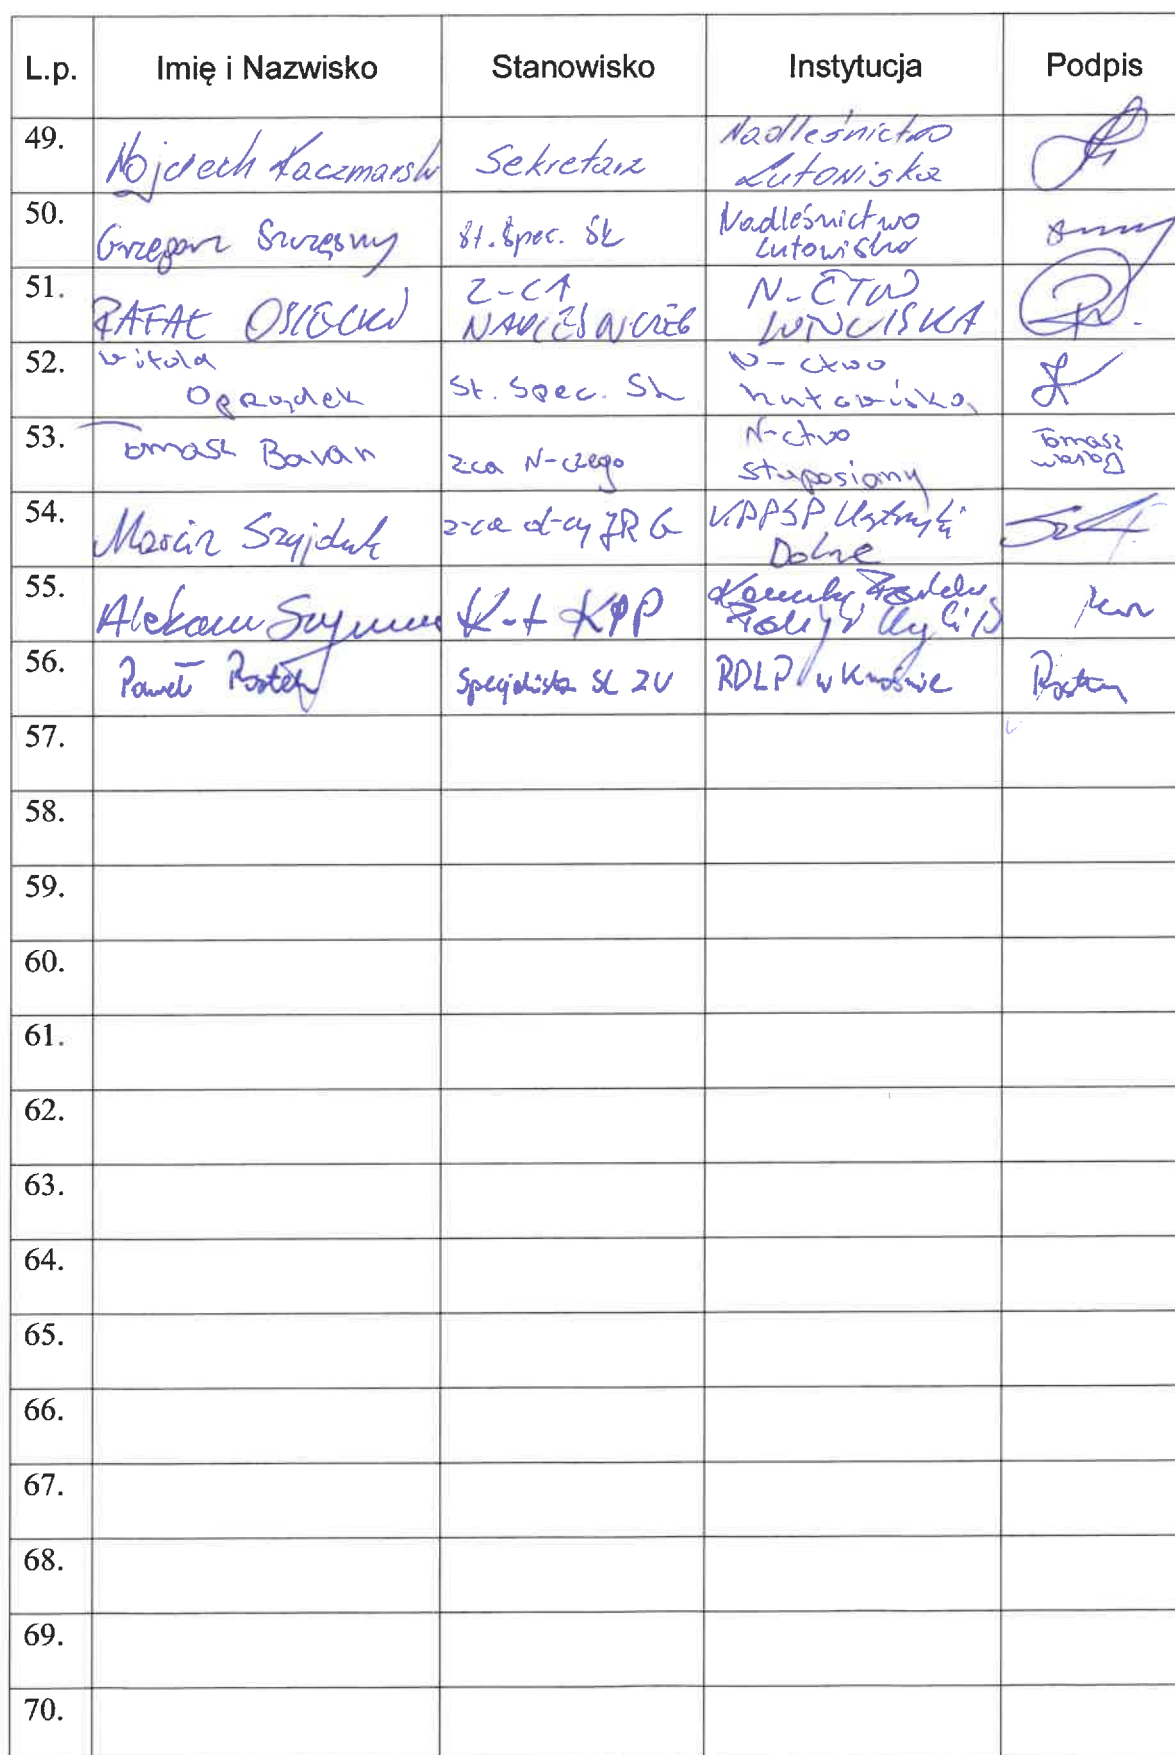 L.p. Imię i Nazwisko Stanowisko Instytucja Podpis
49. Wojciech Kaczmarski Sekretarz Nadleśnictwo
Lutowiska
50. Grzegorz Szczęsny St. Spec. SL Nadleśnictwo
Lutowiska
51. RAFAŁ OSIECKI Z-CA
NADLEŚNICZEG N-CTWO
LUTOWISKA
52. Witold
Ogrodek St. Spec. SL N-ctwo
Lutowiska
53. Tomasz Baran zca N-czego N-ctwo
Stuposiany Tomasz
Baran
54. Marcin Szyjduk z-ca d-cy JRG KPPSP Ustrzyki
Dolne
55. K-t KPP
56. Paweł Specjalista SL ZU RDLP w Krośnie
57.
58.
59.
60.
61.
62.
63.
64.
65.
66.
67.
68.
69.
70.